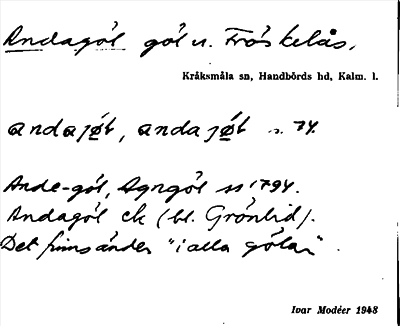 Andagöl göl n. Fröskelås.
Kråksmåla sn, Handbörds hd, Kalm. l.
andajøt, andajøt 74
Ande-göl, Agngöl ss 1794.
Andagöl ek (bl. Grönlid).
Det finns änder "i alla gölar".
Ivar Modéer 1948